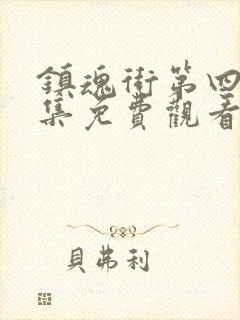 鎮魂街第四
集免費觀看
貝弗利